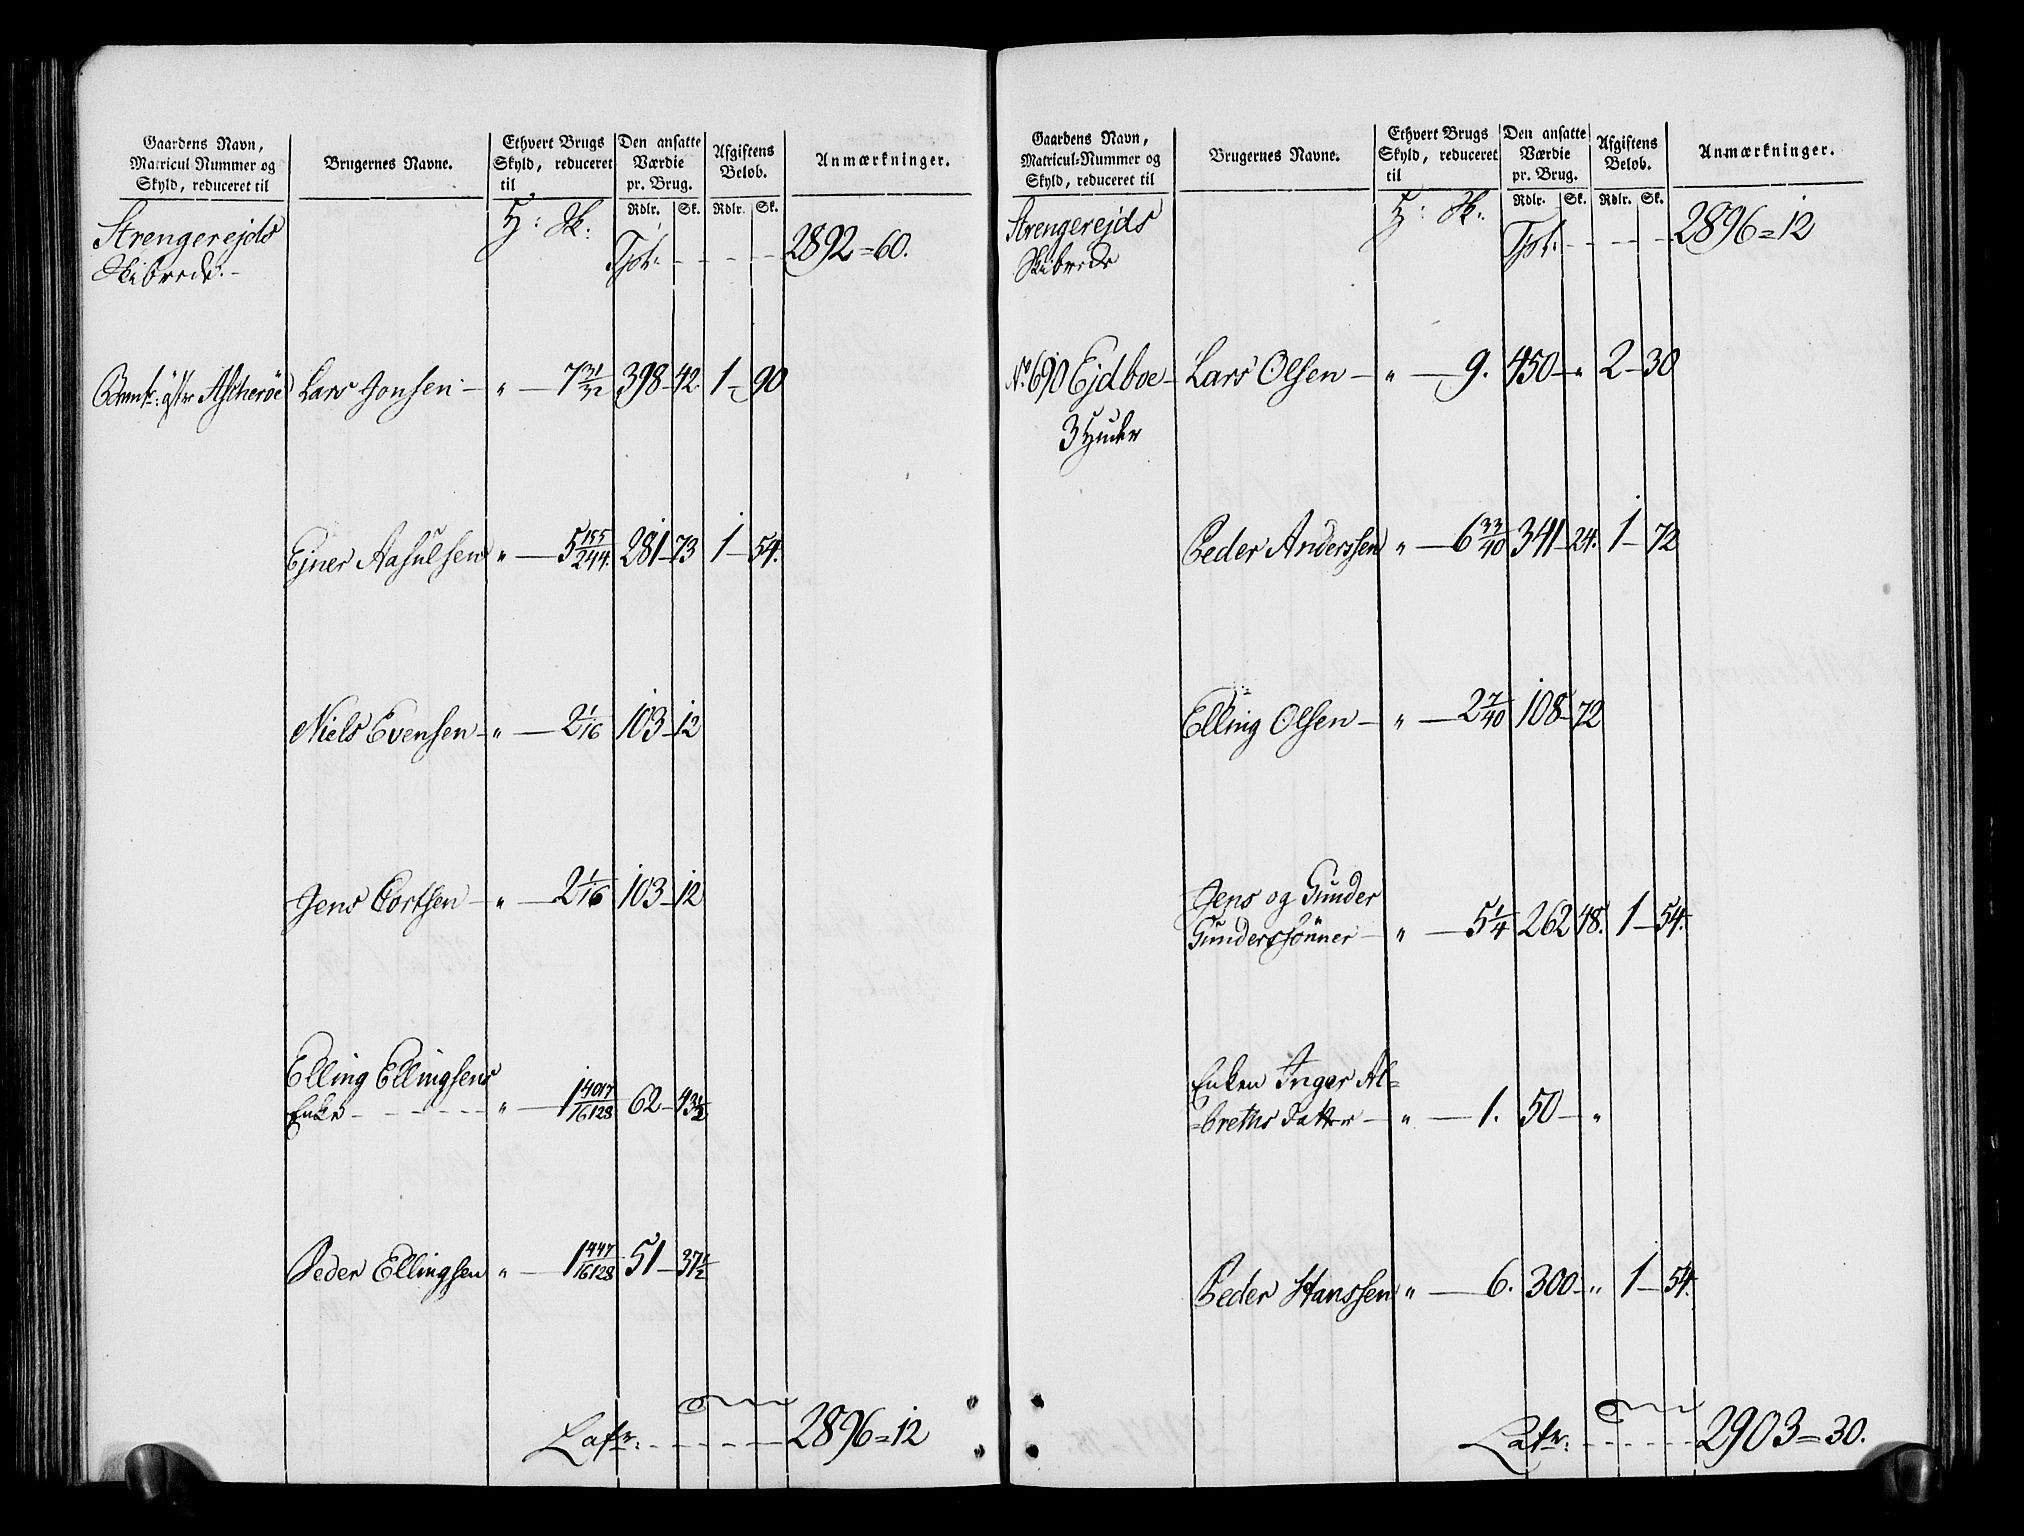 Gaardens Navn,
Matricul Nummer og
Skyld, reduceret til
Brugernes Navne.
Ethvert Brugs
Skyld, reduceret
til
Den ansatte
Værdie
pr. Brug.
Afgiftens
Beløb.
Anmærkninger.
H: Sk:
Rdlr. Sk. Rdlr. Sk.
Strengerejds
Skibrede
Tpt: - - - - 2892=60.
øster Ascherøe Lars Jonsen - " - 7 31/32 398 - 42. 1 - 90
Ejner Aasulsen " - 5 155/244. 281 - 73 1 - 54.
Niels Evensen - " - 2 1/16 103 - 12
Jens Cortsen - " - 2 1/16 103 - 12
Elling Ellingsens
Enke - - - - " - 1 4017/16128 62 - 43 1/2
Peder Ellingsen " - 1 447/16128 51 - 37 1/2
Latr: - - - - 2896=12
Gaardens Navn,
Matricul-Nummer og
Skyld, reduceret til
Brugernes Navne.
Ethvert Brugs
Skyld, reduceret
til
Den ansatte
Værdie
pr. Brug.
Afgiftens
Beløb.
Anmærkninger.
H: Sk:
Rdlr. Sk. Rdlr. Sk.
Strengerejds
Skibrede
Tpt: - - - - 2896=12
No 690 Ejdboe - Lars Olsen - " - 9. 450 - " 2 - 30
3 Huder
Peder Anderssen " - 6 33/40 341 - 24. 1 - 72
Elling Olsen - " - 2 7/40 108 - 72
Jens og Gunder
Gunderssønner - " - 5 1/4 262 48. 1 - 54.
Enken Inger Al=
=breths Datter - " - 1. 50 - "
Peder Hanssen " - 6. 300 - " 1 - 54.
Latr: - - - - 2903=30.